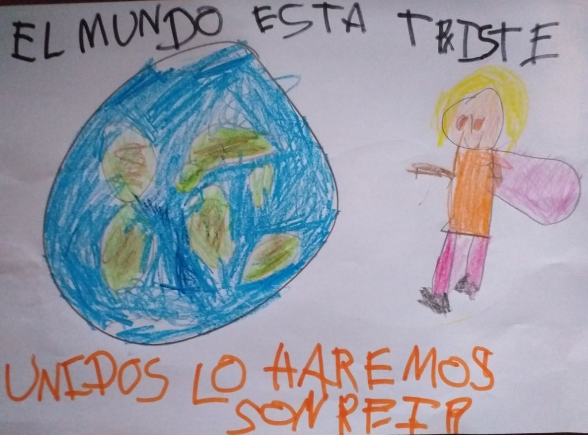 EL MUNDO ESTA TRISTE
UNIDOS LO HAREMOS
SONREIR